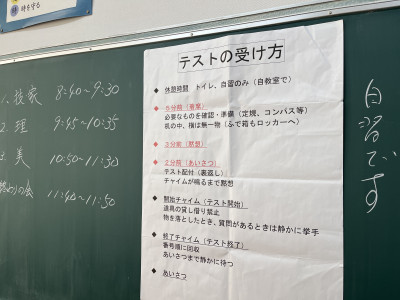 時を守る
1. 技家 8:40~9:30
2. 理 9:45~10:35
3. 美 10:50~11:30
終わりの会 11:40~11:50
テストの受け方
◆ 休憩時間 トイレ、自習のみ（自教室で）
◆ 5分前（着席）
必要なものを確認・準備（定規、コンパス等）
机の中、横は無一物（ふで箱もロッカーへ）
◆ 3分前（黙想）
◆ 2分前（あいさつ）
テスト配付（裏返し）
チャイムが鳴るまで黙想
◆ 開始チャイム（テスト開始）
道具の貸し借り禁止
物を落としたとき、質問があるときは静かに挙手
◆ 終了チャイム（テスト終了）
番号順に回収
あいさつまで静かに待つ
◆ あいさつ
自習です